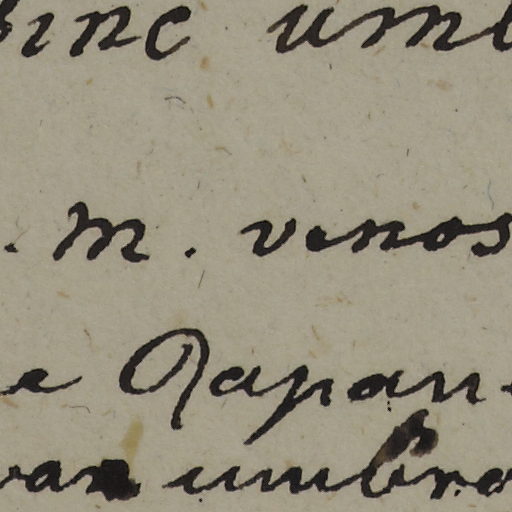 binc umb
. m. venos
e Rapan
van umbro